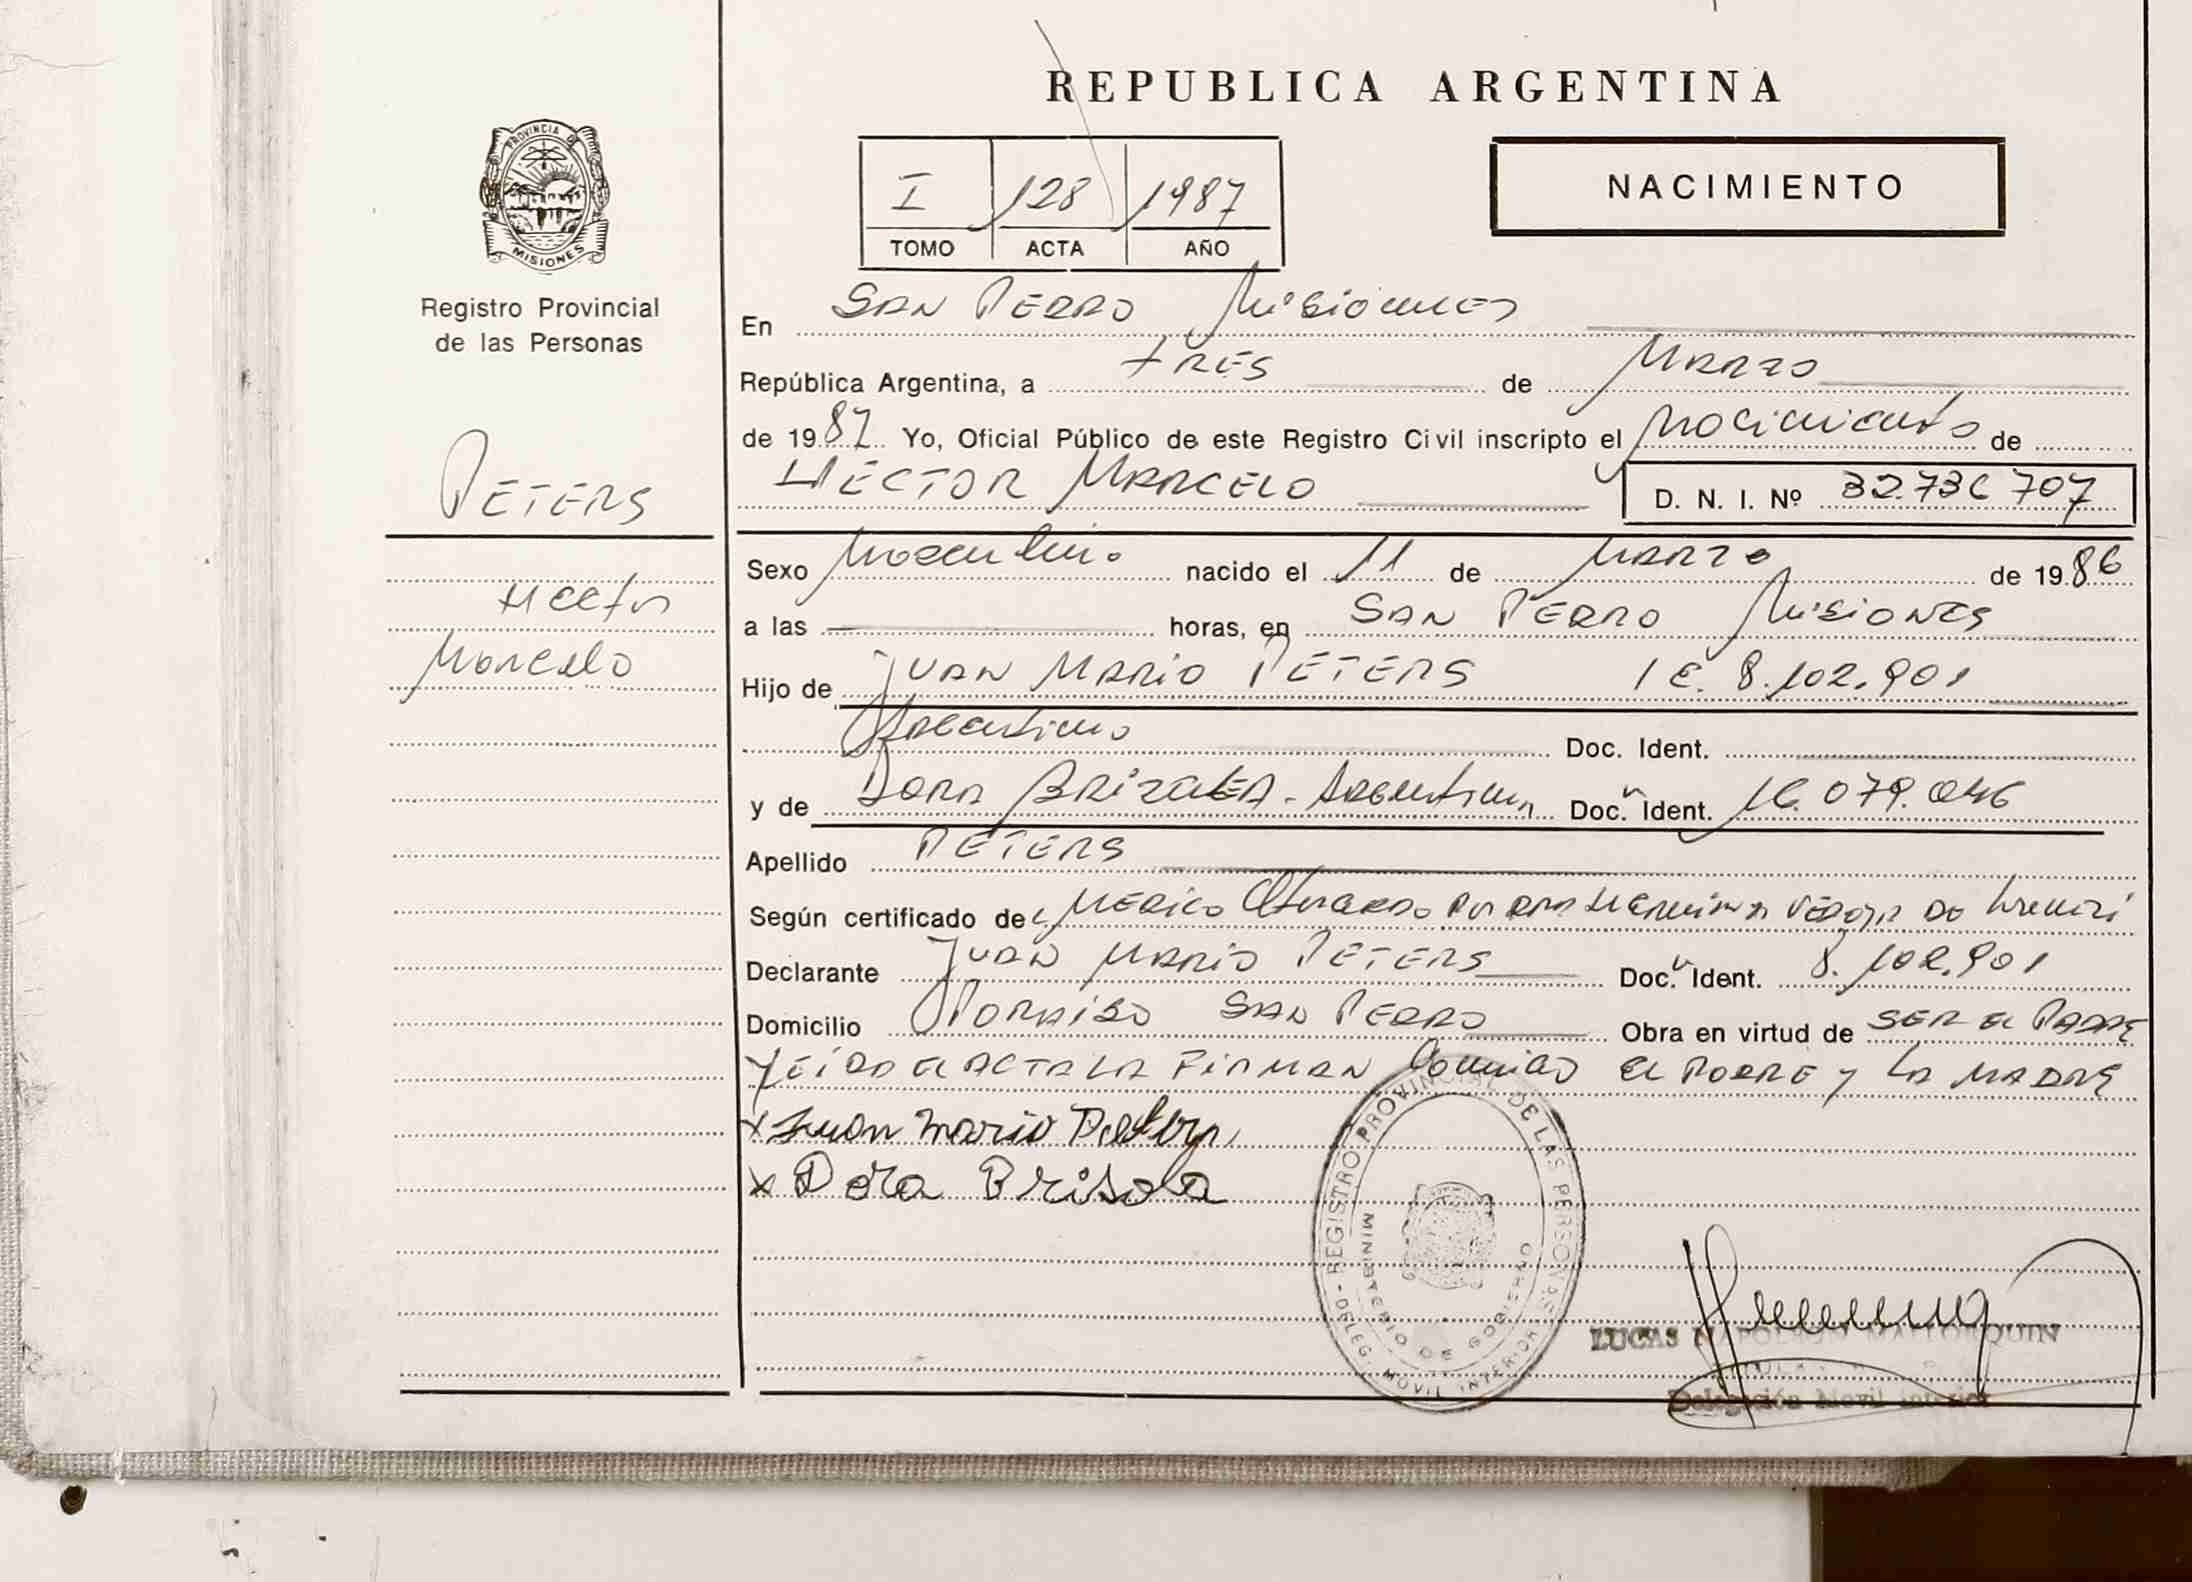 REPUBLICA ARGENTINA
PROVINCIA DE
MISIONES
Registro Provincial
de las Personas
I 128 1987
TOMO ACTA AÑO
NACIMIENTO
En SAN PEDRO Misiones
República Argentina, a TRES de MARZO
de 1987 Yo, Oficial Público de este Registro Civil inscripto el Nacimiento de
HECTOR MARCELO D. N. I. Nº 32.736 707
PETERS
Hector
Marcelo
Sexo Masculino nacido el 11 de MARZO de 1986
a las horas, en SAN PEDRO MISIONES
Hijo de JUAN MARIO PETERS 8.102.901
Argentino Doc. Ident.
y de DORA BRIZOLA - Argentina Doc. Ident. 16.079.046
Apellido PETERS
Según certificado de MEDICO
Declarante JUAN MARIO PETERS Doc. Ident. 8.102.901
Domicilio PORAISO SAN PEDRO Obra en virtud de SER EL PADRE
LEIDO EL ACTA LA FIRMAN Conmigo EL PADRE y LA MADRE
x Juan Mario Peters
x Dora Brisola
REGISTRO PROVINCIAL DE LAS PERSONAS - DELEG. MOVIL INTERIOR
MINISTERIO DE GOBIERNO
LUCAS NAPOLEON MALLORQUIN
Delegación Movil Interior